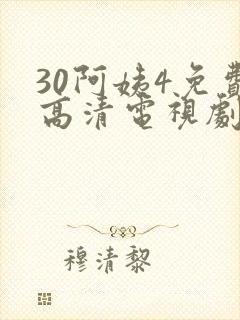 30阿姨4免費
高清電視劇
穆清黎